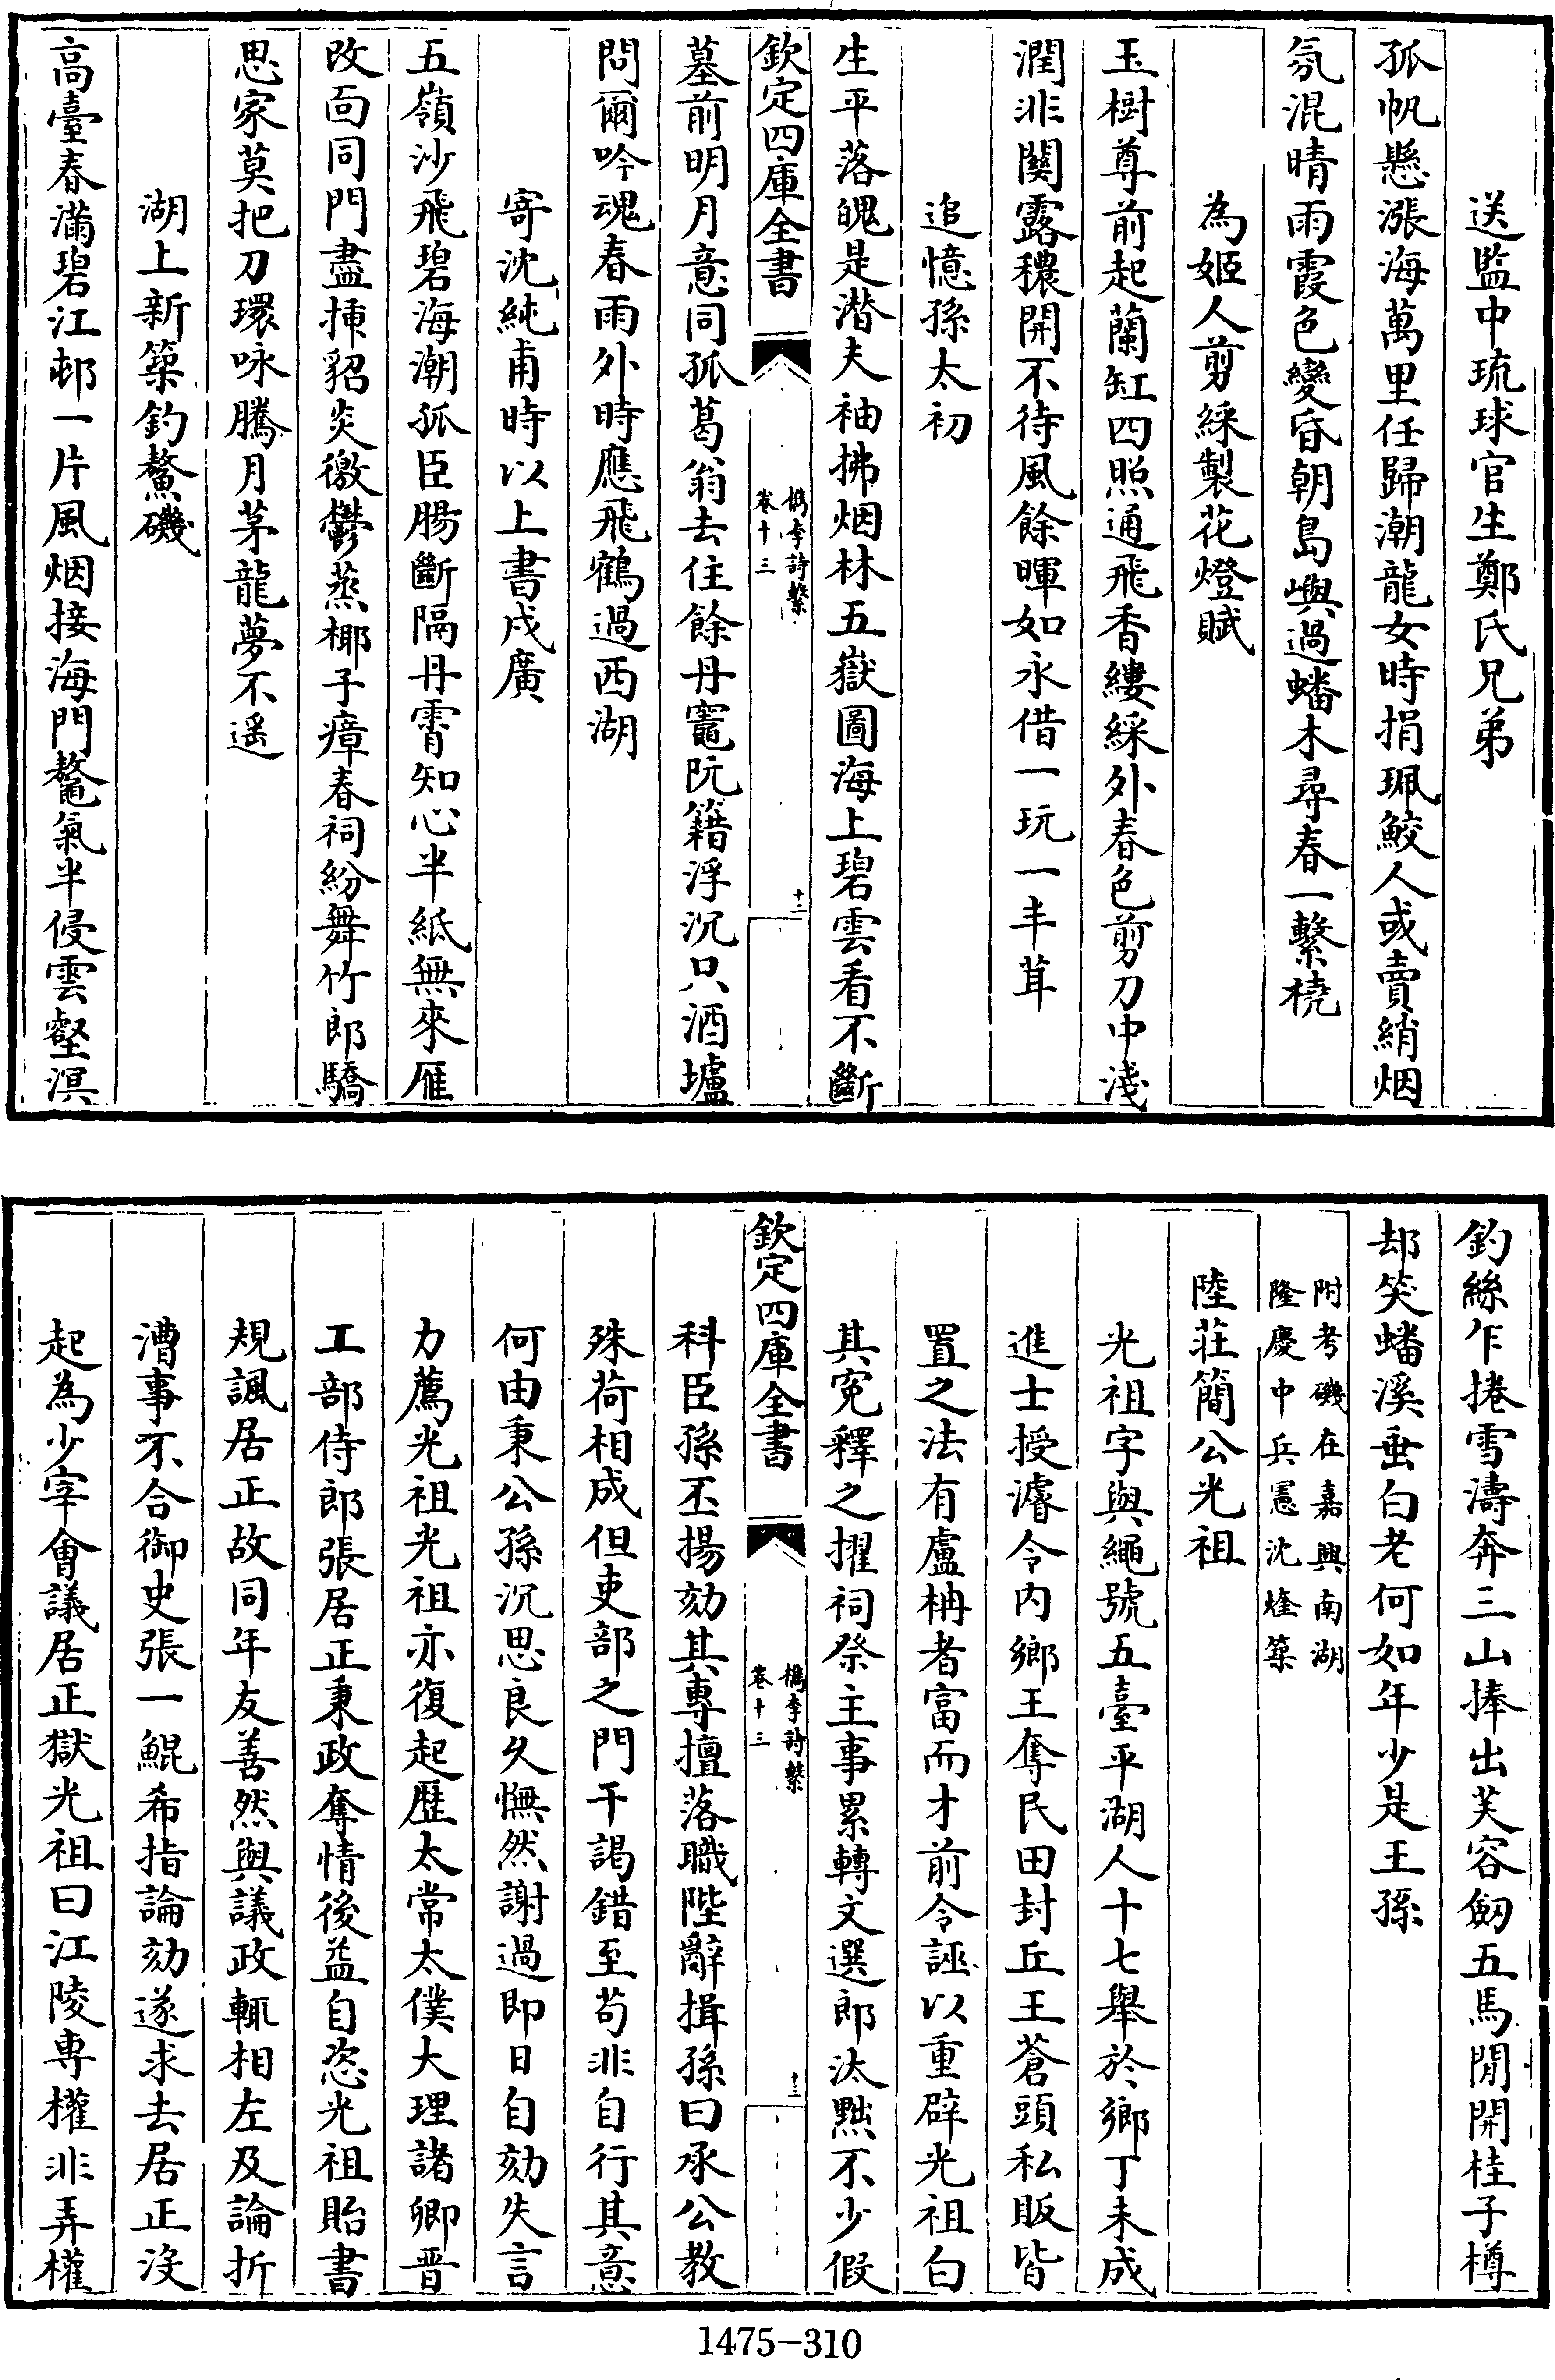 送監中琉球官生鄭氏兄弟
孤帆懸漲海萬里任歸潮龍女時捐珮鮫人或賣綃烟
氛混晴雨霞色變昏朝島嶼過蟠木尋春一繫橈
為姬人剪綵製花燈賦
玉樹尊前起蘭缸四照通飛香縷綵外春色剪刀中淺
潤非關露穠開不待風餘暉如永借一玩一丰茸
追憶孫太初
生平落魄是潛夫袖拂烟林五嶽圖海上碧雲看不斷
欽定四庫全書
檇李詩繫
卷十三
十二
墓前明月意同孤葛翁去住餘丹竈阮籍浮沉只酒壚
問爾吟魂春雨外時應飛鶴過西湖
寄沈純甫時以上書戍廣
五嶺沙飛碧海潮孤臣腸斷隔丹霄知心半紙無來雁
改面同門盡揷貂炎徼鬱蒸椰子瘴春祠紛舞竹郎驕
思家莫把刀環咏騰月茅龍夢不遥
湖上新築釣鰲磯
高臺春滿碧江邨一片風烟接海門鼇氣半侵雲壑溟
釣絲乍捲雪濤奔三山捧出芙容劒五馬閒開桂子樽
却笑蟠溪垂白老何如年少是王孫
附考磯在嘉興南湖
隆慶中兵憲沈煃築
陸莊簡公光祖
光祖字與繩號五臺平湖人十七舉於鄉丁未成
進士授濬令内鄉王奪民田封丘王蒼頭私販皆
置之法有盧柟者富而才前令誣以重辟光祖白
其寃釋之擢祠祭主事累轉文選郎汰黜不少假
欽定四庫全書
檇李詩繫
卷十三
十三
科臣孫丕揚劾其專擅落職陛辭揖孫曰承公教
殊荷相成但吏部之門干謁錯至茍非自行其意
何由秉公孫沉思良久憮然謝過即日自劾失言
力薦光祖光祖亦復起歴太常太僕大理諸卿晉
工部侍郎張居正秉政奪情後益自恣光祖貽書
規諷居正故同年友善然與議政輒相左及論折
漕事不合御史張一鯤希指論劾遂求去居正沒
起為少宰會議居正獄光祖曰江陵専權非弄權
1475-310